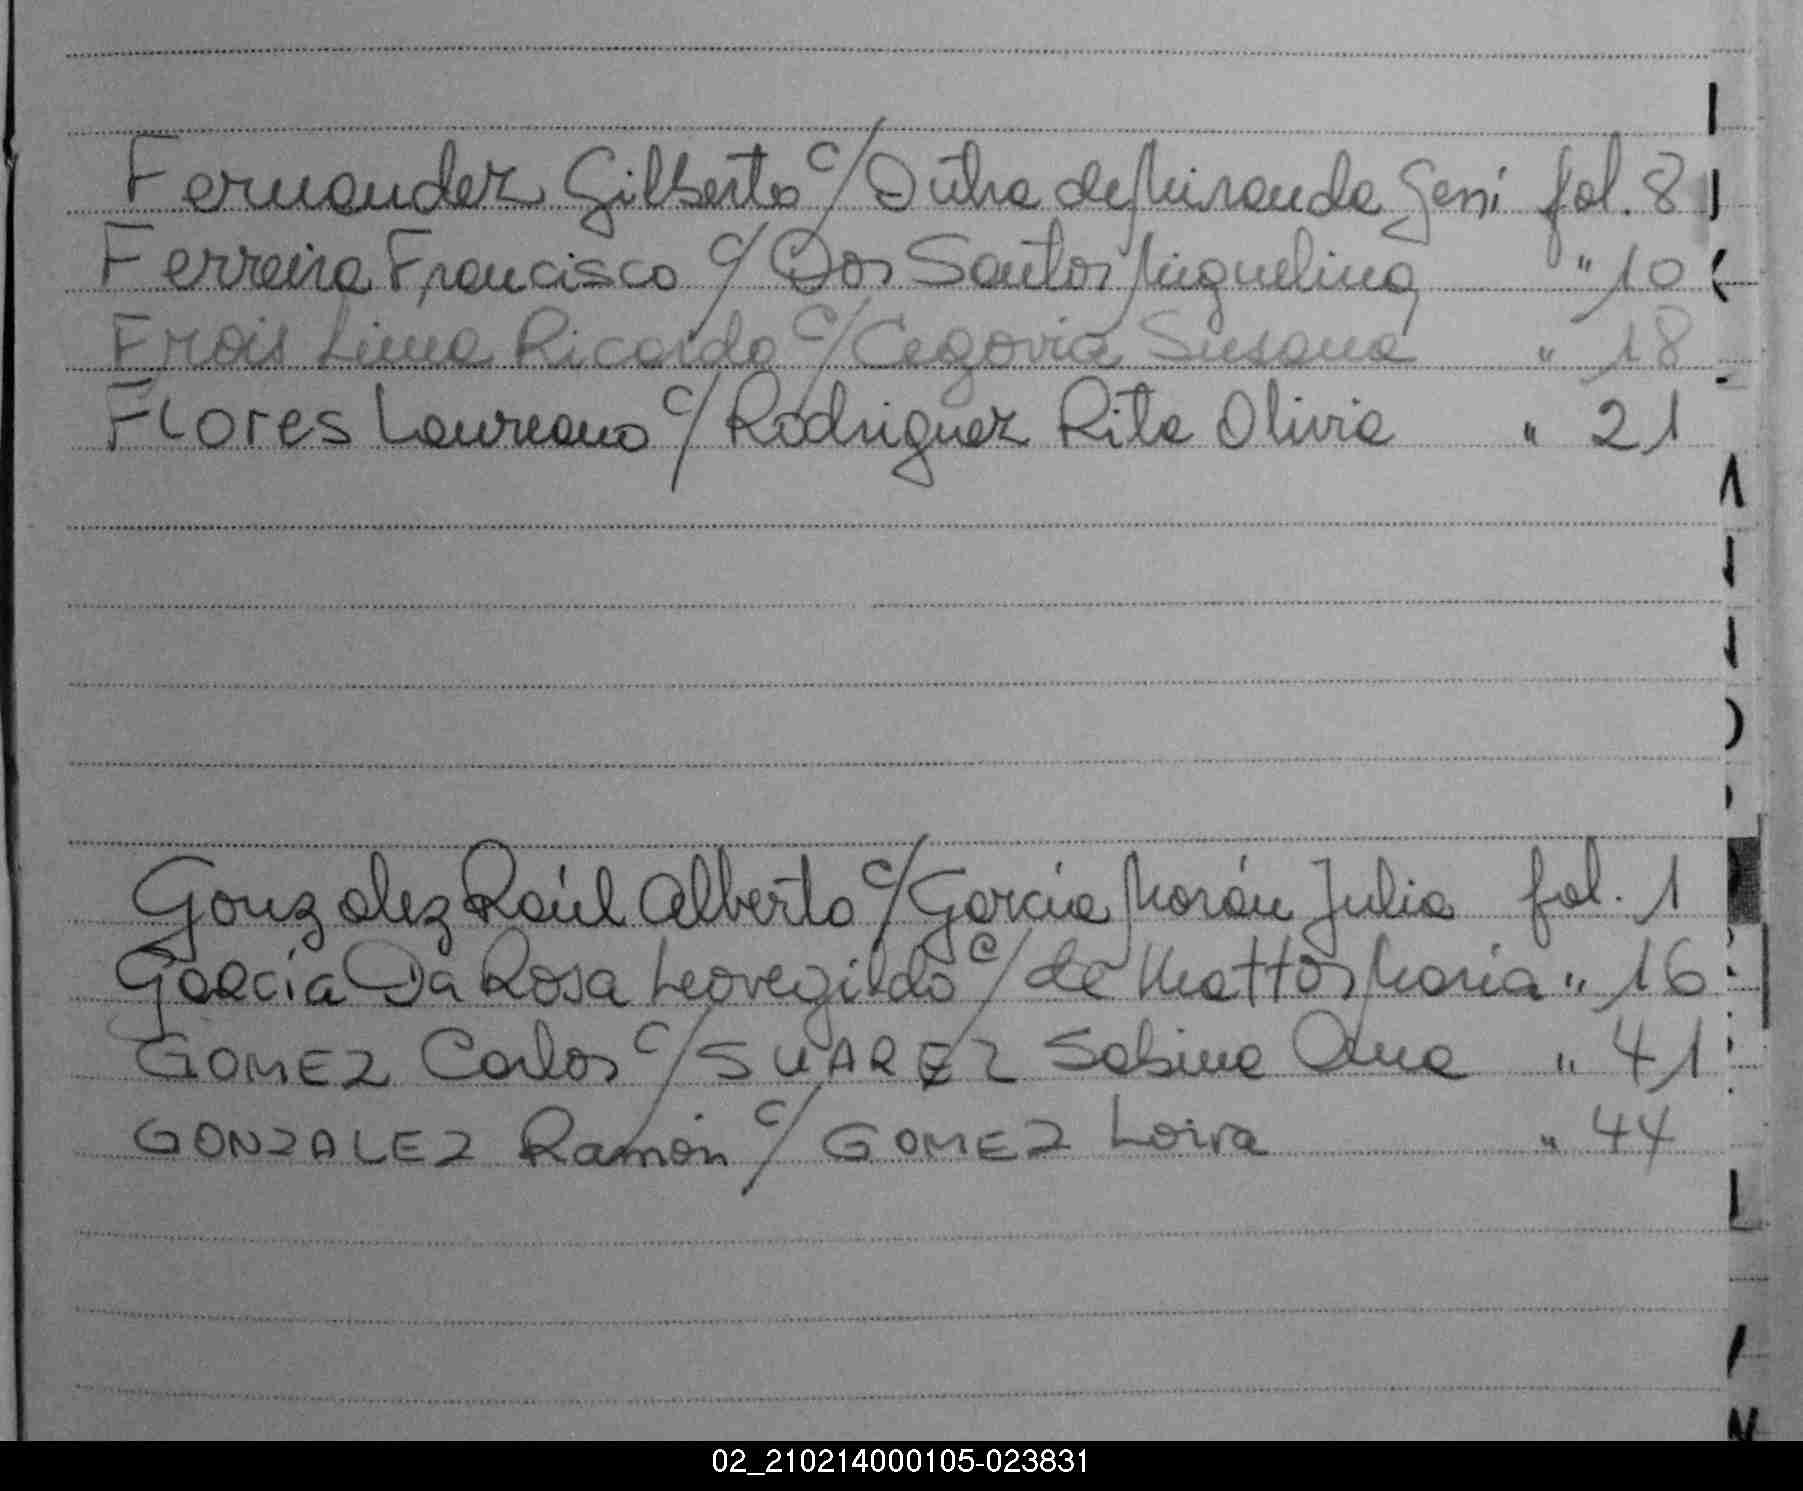 Fernandez Gilberto c/ Dutra de Miranda Geni fol. 8
Ferreira Francisco c/ Dos Santos Miguelina " 10
Frois Lima Ricardo c/ Cegovia Susana " 18
Flores Laureano c/ Rodriguez Rita Olivia " 21
Gonzalez Raúl Alberto c/ Garcia Morán Julia fol. 1
Garcia Da Rosa Leovegildo c/ de Mattos Maria " 16
GOMEZ Carlos c/ SUAREZ Sabina Ana " 41
GONZALEZ Ramón c/ GOMEZ Loira " 44
02_210214000105-023831